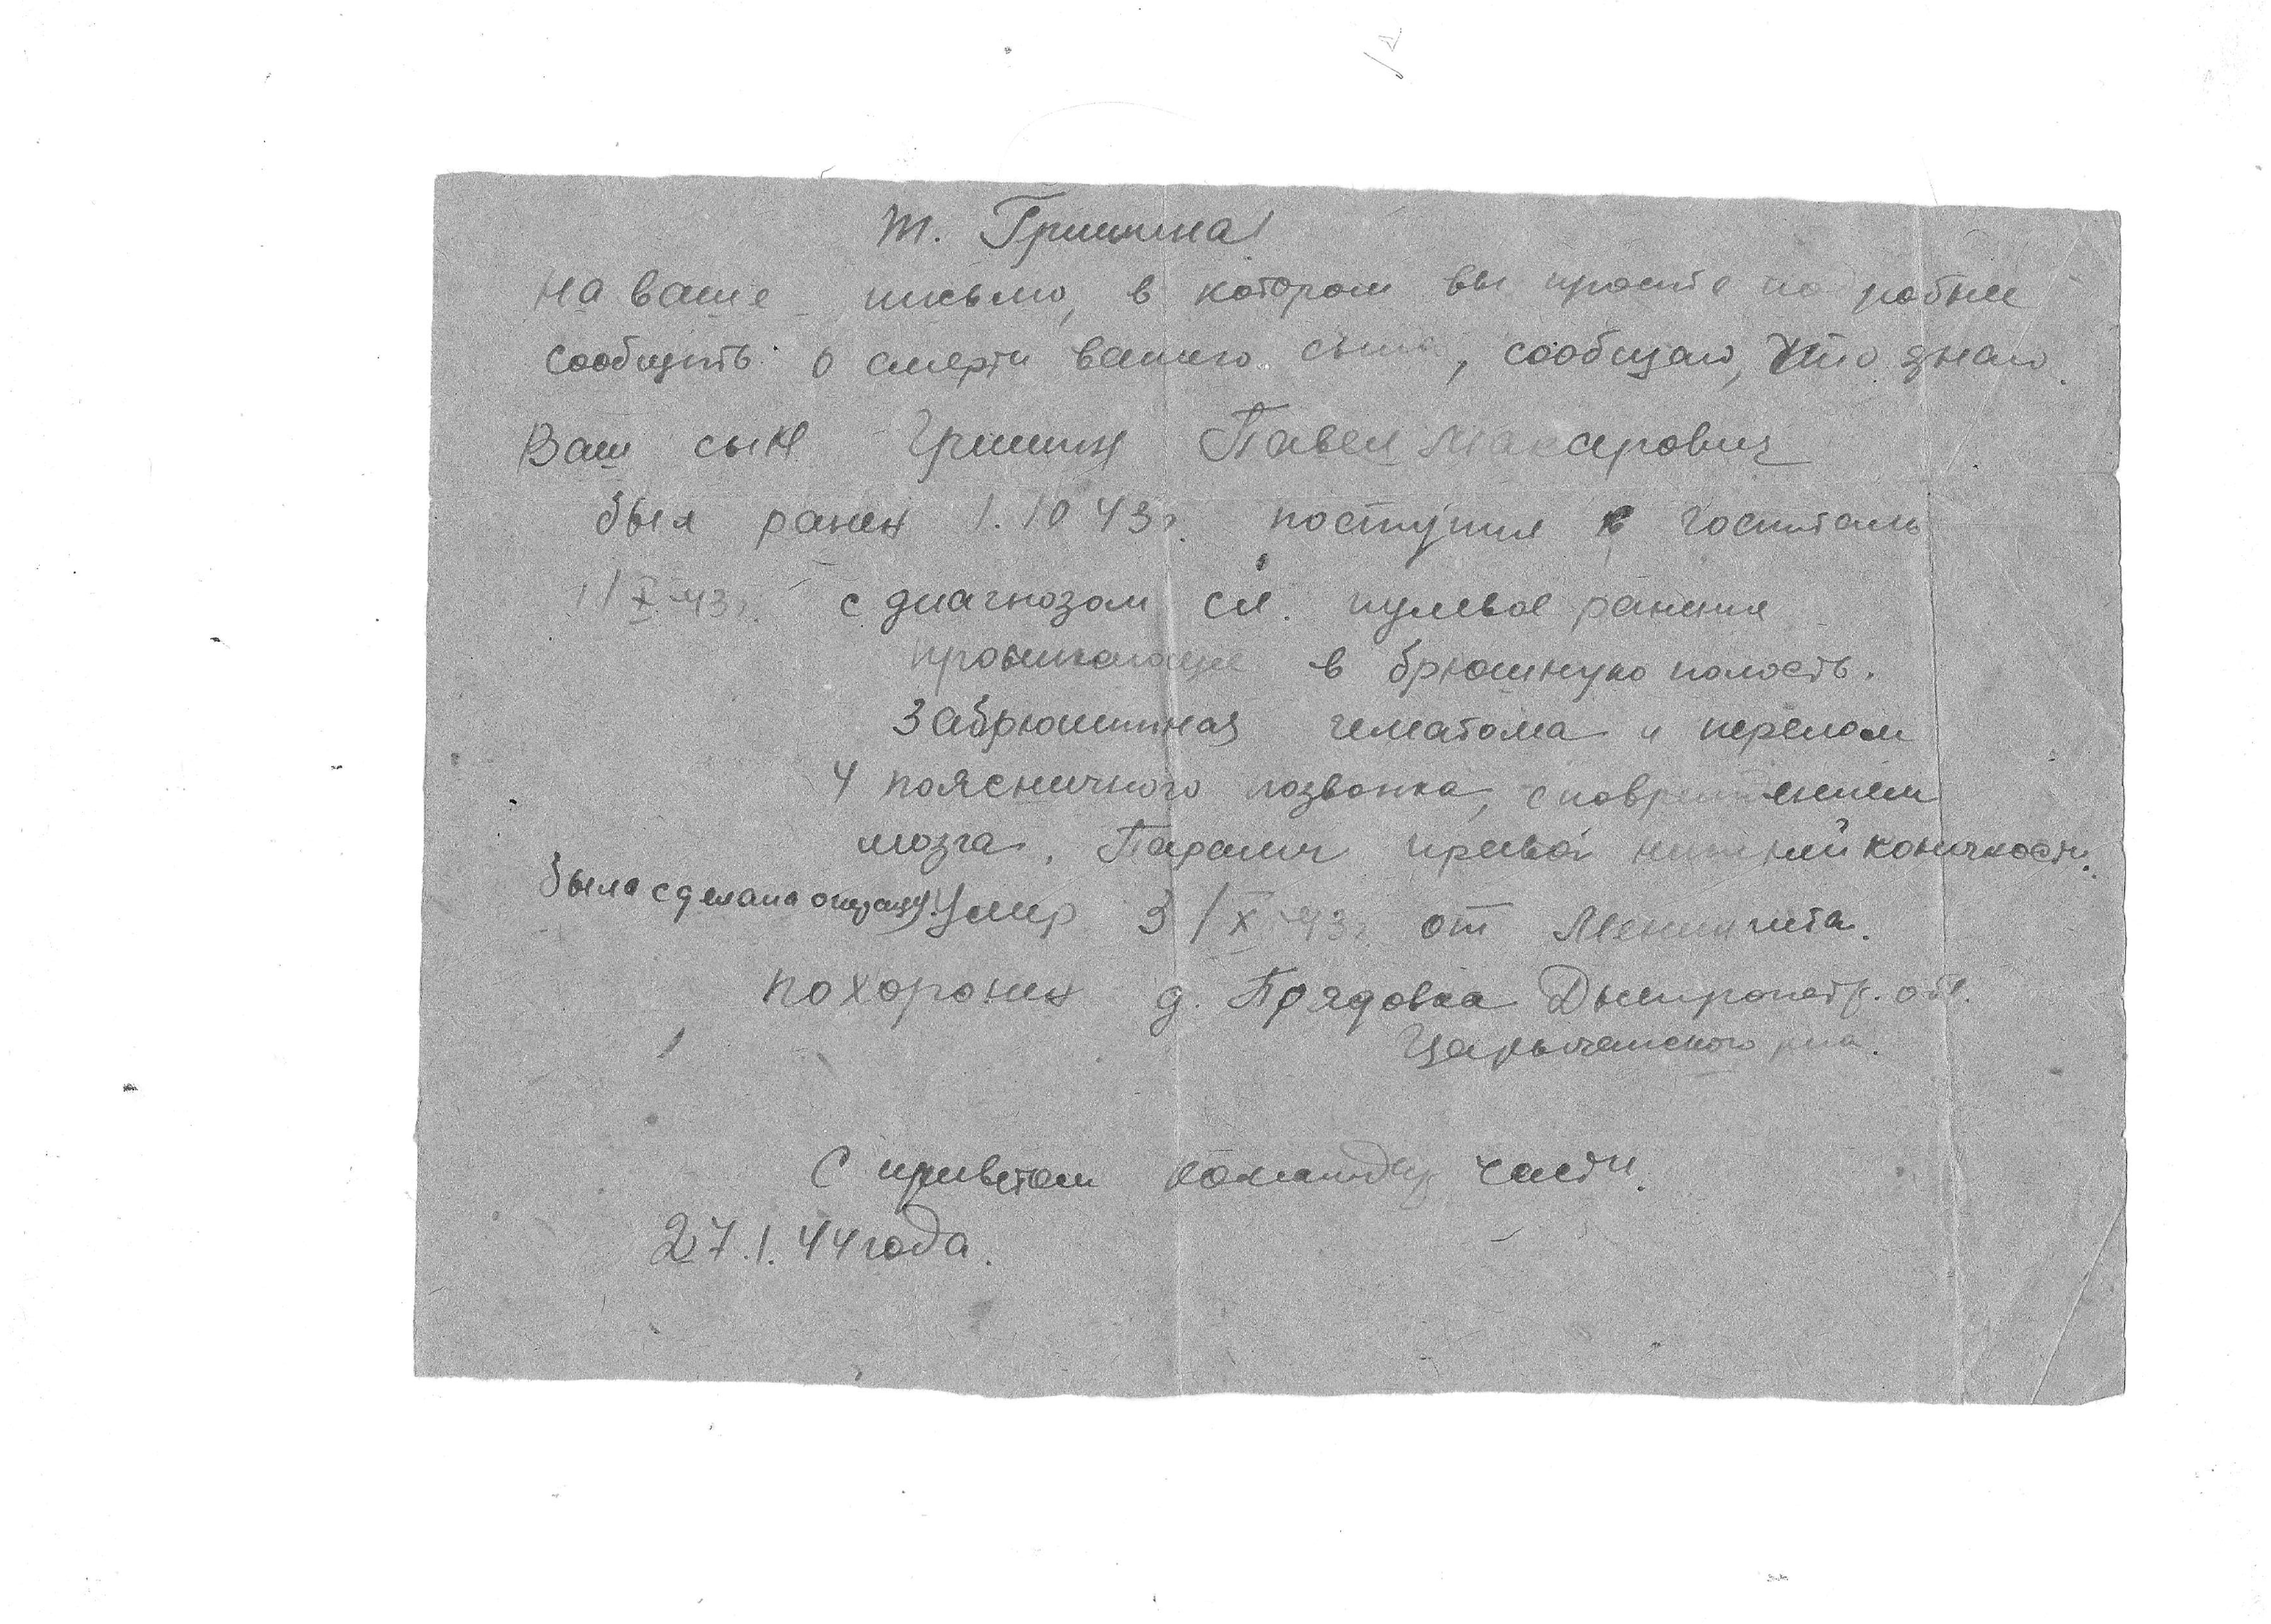 т. Гришина
На ваше письмо, в котором вы просите подробнее
сообщить о смерти вашего сына, сообщаю, что знаю.
Ваш сын Гришин Павел Макарович
был ранен 1.10 43г. поступил в госпиталь
1/X-43г. с диагнозом сл. пулевое ранение
проникающее в брюшную полость.
Забрюшинная гематома и перелом
4 поясничного позвонка, с повреждением
мозга. Паралич правой нижней конечности.
была сделана операция. Умер 3/X-43г. от Менингита.
похоронен д. Прядовка Днепропетр. обл.
Царычанского р-на.
С приветом командир части.
27.1.44 года.